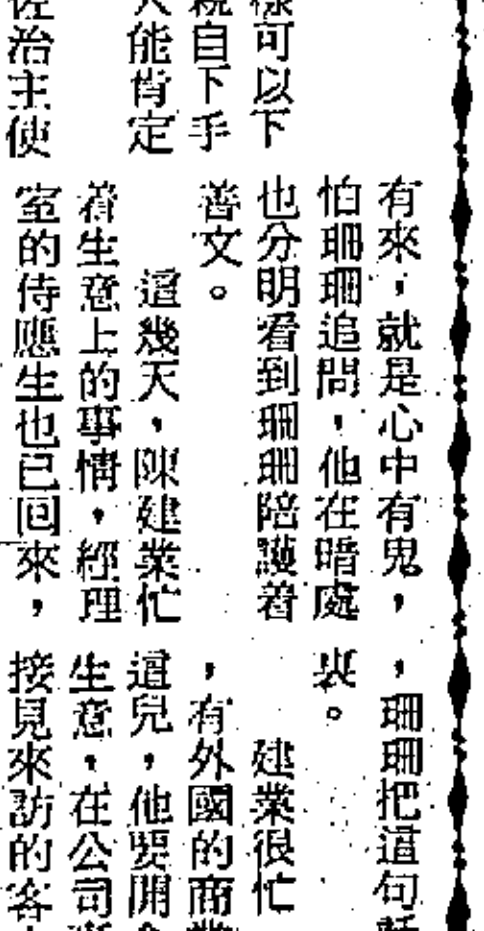 樣可以下
親自下手
人能肯定
佐治主使
有來，就是心中有鬼，
怕珊珊追問，他在暗處
也分明看到珊珊陪護着
善文。
這幾天，陳建業忙
着生意上的事情，經理
室的侍應生也已回來，
，珊珊把這句話
裏。
建業很忙
，有外國的商
這兒，他要開
生意，在公司
接見來訪的客